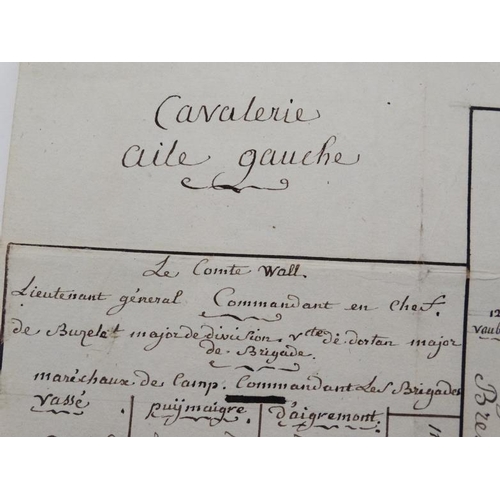 Cavalerie
aile gauche
Le Comte Wall.
Lieutenant général Commandant en chef.
de Buzelet major de division. Vcte de dortan major
de Brigade.
maréchaux de Camp. Commandant Les Brigades
Vassé . puÿmaigre. d'aigremont.
12